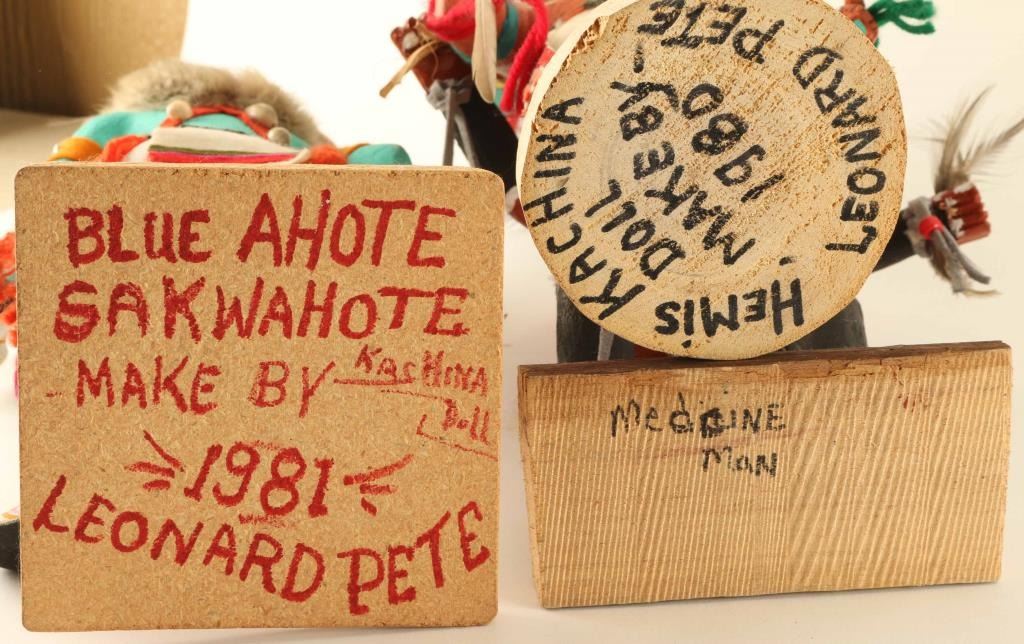 BLUE AHOTE
SAKWAHOTE
MAKE BY KACHINA
Doll
1981
LEONARD PETE
HEMIS KACHINA
DOLL
MAKE BY-
MAKE 1980
LEONARD PETE
MEdiciNE
MAN